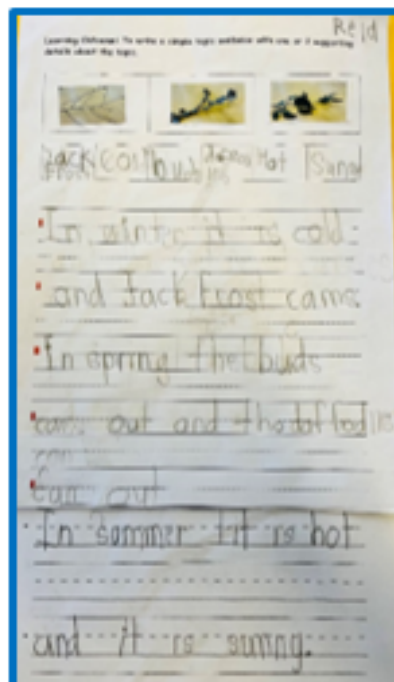 Reid
Learning Outcome: To write a simple topic sentence with one or 2 supporting
details about the topic.
Jack cold buds Hot Sunny
Frost
In winter it is cold
and Jack Frost came
In spring the buds
came out and the daffodils
can
can out
In sommer it is hot
and it is sunng.